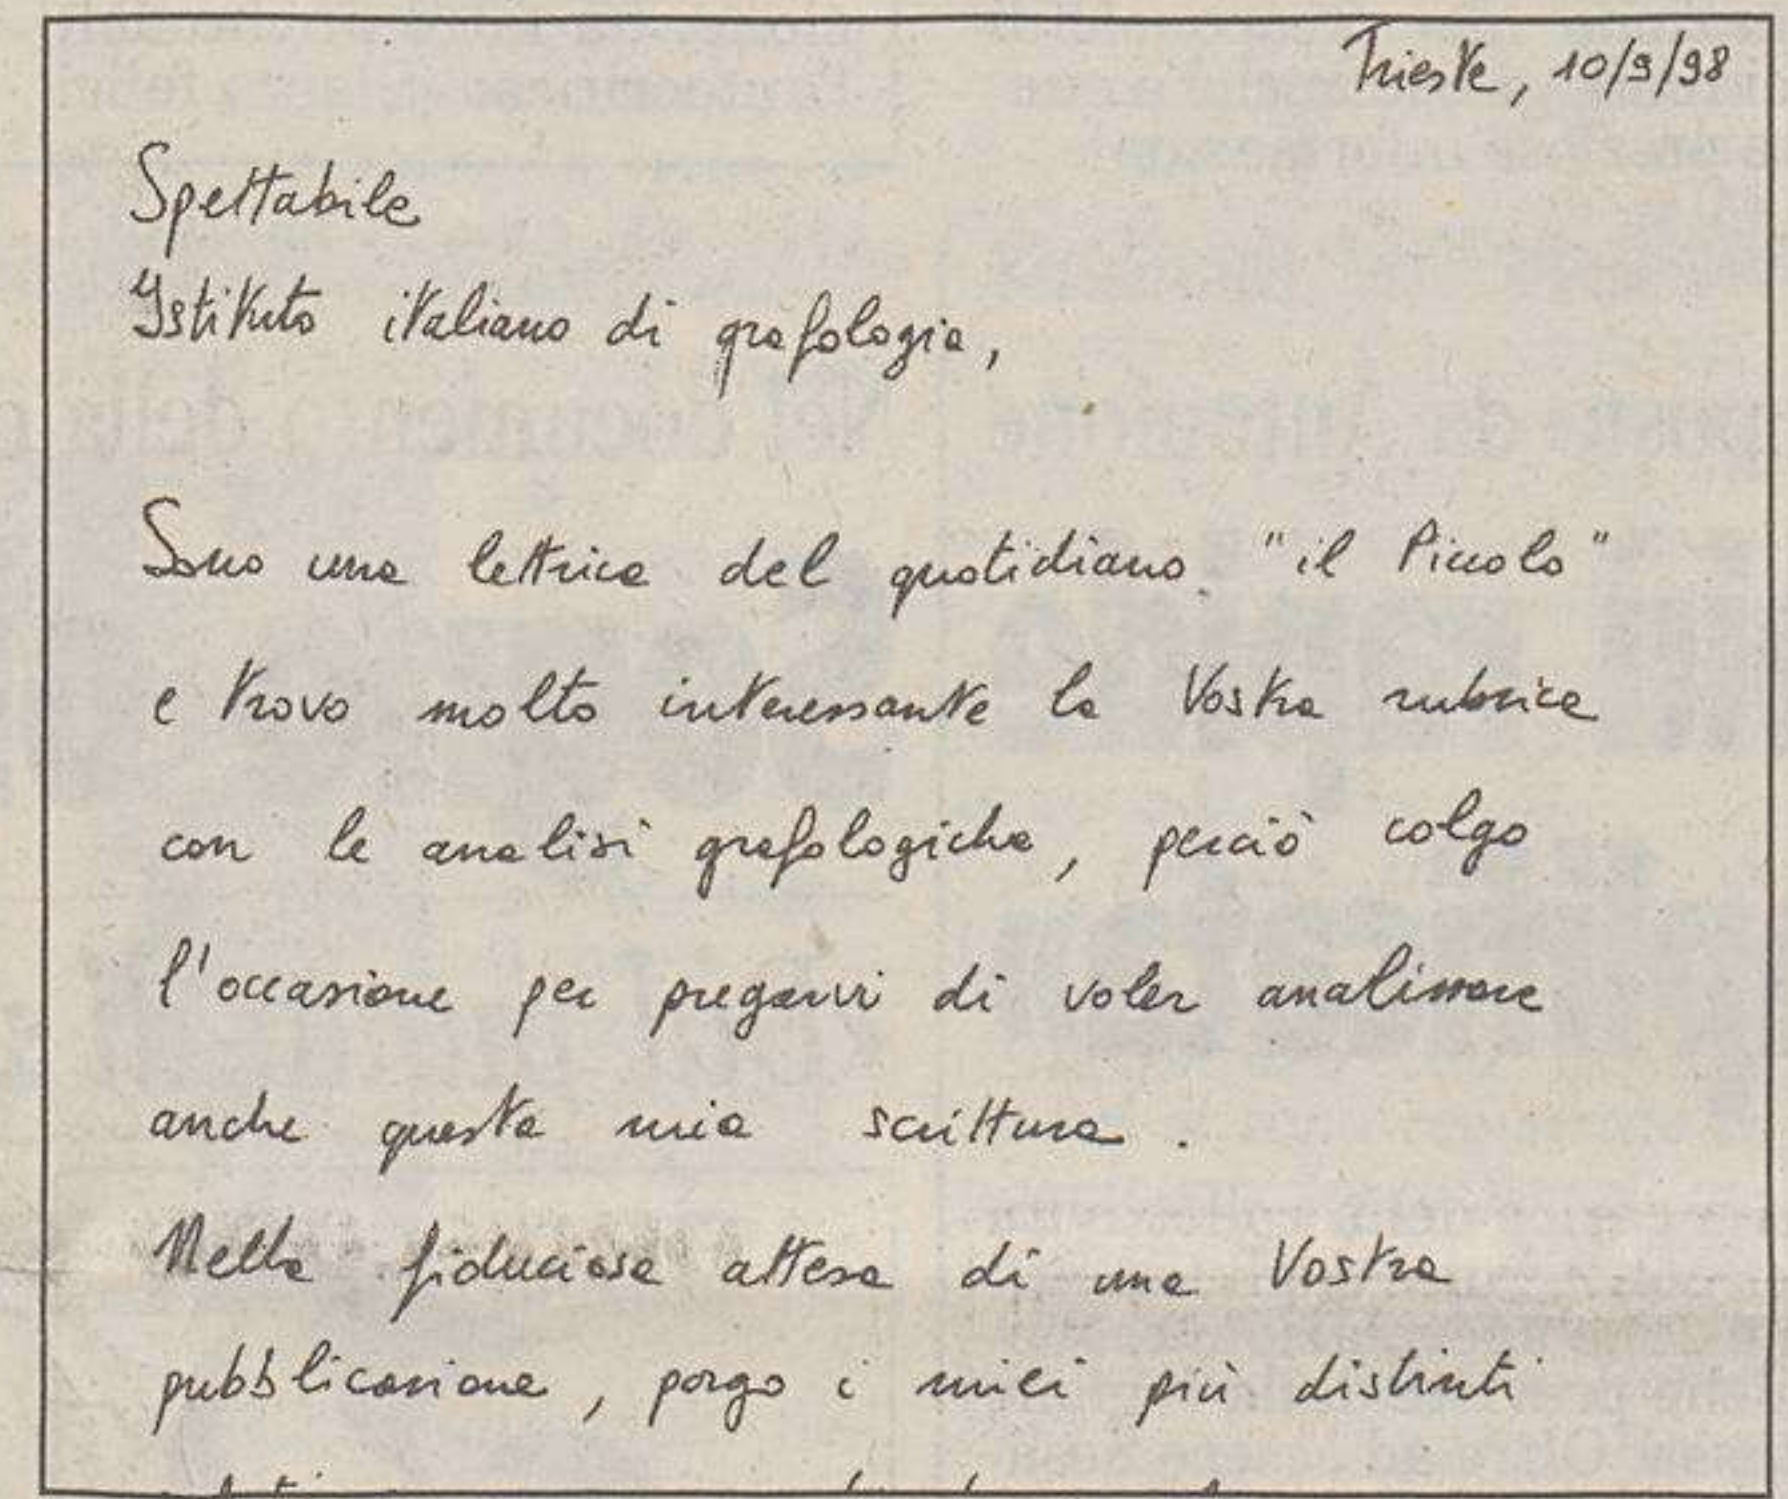 Trieste, 10/9/98
Spettabile
Istituto italiano di grafologia,
Sono una lettrice del quotidiano "il Piccolo"
e trovo molto interessante la Vostra rubrica
con le analisi grafologiche, perciò colgo
l'occasione per pregarvi di voler analizzare
anche questa mia scrittura.
Nella fiduciosa attesa di una Vostra
pubblicazione, porgo i miei più distinti